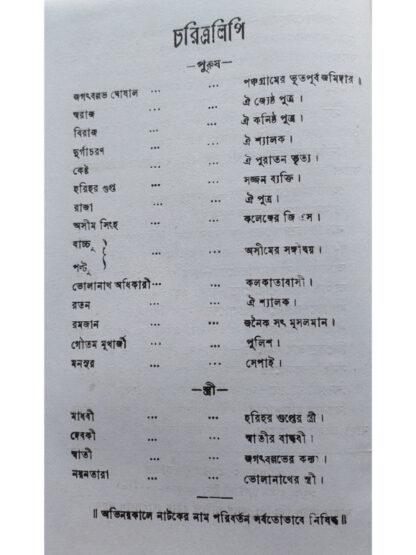 চরিত্রলিপি
—পুরুষ—
জগৎবল্লভ ঘোষাল ... ... পঞ্চগ্রামের ভূতপূর্ব জমিদার।
স্বরাজ ... ... ঐ জ্যেষ্ঠ পুত্র।
বিরাজ ... ... ঐ কনিষ্ঠ পুত্র।
দুর্গাচরণ ... ... ঐ শ্যালক।
কেষ্ট ... ... ঐ পুরাতন ভৃত্য।
হরিহর গুপ্ত ... ... সজ্জন ব্যক্তি।
রাজা ... ... ঐ পুত্র।
অসীম সিংহ ... ... কলেজের জি এস।
বাচ্চু } ... ... অসীমের সঙ্গীদ্বয়।
পল্টু
ভোলানাথ অধিকারী... ... কলকাতাবাসী।
রতন ... ... ঐ শ্যালক।
রমজান ... ... জনৈক সৎ মুসলমান।
গৌতম মুখার্জী ... ... পুলিশ।
মনসুর ... ... সেপাই।
—স্ত্রী—
মাধবী ... ... হরিহর গুপ্তের স্ত্রী।
দেবকী ... ... স্বাতীর বান্ধবী।
স্বাতী ... ... জগৎবল্লভের কন্যা।
নয়নতারা ... ... ভোলানাথের স্ত্রী।
॥ অভিনয়কালে নাটকের নাম পরিবর্তন সর্বতোভাবে নিষিদ্ধ ॥